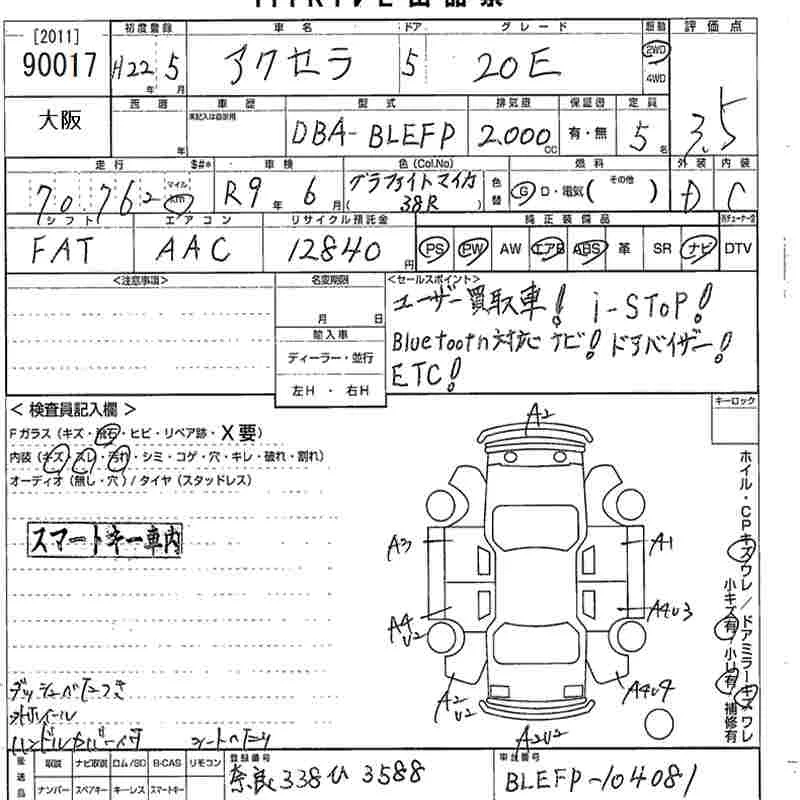 [2011]
90017
大阪
初度登録
H22年 5月
車名
アクセラ
ドア
5
グレード
20E
駆動
2WD
4WD
評価点
3.5
車歴
未記入は自家用
型式
DBA-BLEFP
排気量
2.000cc
保証書
有・無
定員
5名
走行
70,762
マイル
km
$#*
車検
R9年 6月
色 (Col.No)
グラファイトマイカ
38R
色替
燃料
G・D・電気( その他 )
外装
D
内装
C
シフト
FAT
エアコン
AAC
リサイクル預託金
12840円
純正装備品
PS PW AW エアB ABS 革 SR ナビ DTV
<注意事項>
名変期限
月 日
輸入車
ディーラー・並行
左H ・ 右H
<セールスポイント>
ユーザー買取車! i-STOP!
Bluetooth対応ナビ! ドアバイザー!
ETC!
キーロック
< 検査員記入欄 >
Fガラス (キズ・飛石・ヒビ・リペア跡・X要)
内装 (キズ・スレ・汚れ・シミ・コゲ・穴・キレ・破れ・割れ)
オーディオ (無し・穴) / タイヤ (スタッドレス)
スマートキー車内
A2
A3
A1
A4
U2
A4U3
A2
U2
A4U4
A2U2
ホイル・CPキズワレ/ドアミラーキズワレ
小キズ有/小U有/補修有
ハンドルカバー付 シートヘタリ
後送品
取説 ナビ取説 ロム/SD B-CAS リモコン
ナンバー スペアキー キーレス スマートキー
登録番号
奈良338ひ3588
車台番号
BLEFP-104081